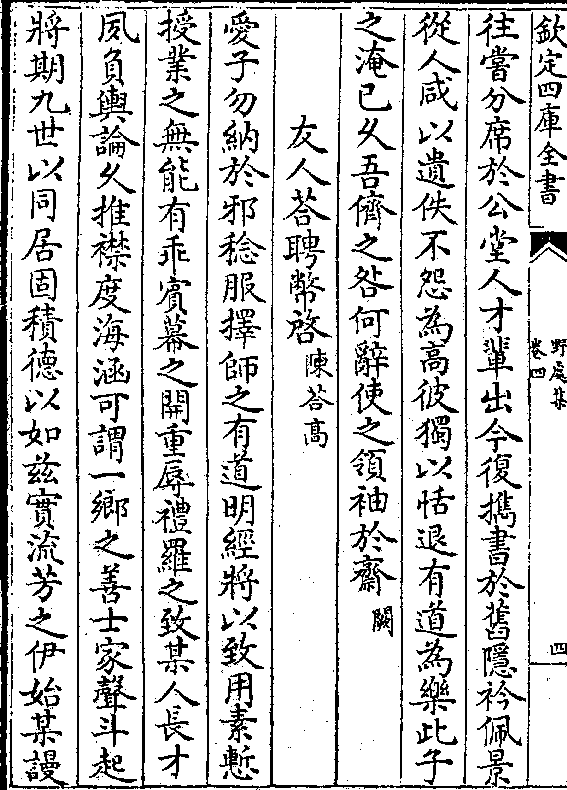 欽定四庫全書
野處集
卷四
四
往嘗分席於公堂人才輩出今復携書於舊隱衿佩景
從人咸以遺佚不怨為高彼獨以恬退有道為樂此子
之淹已久吾儕之咎何辭使之領袖於齋闕
友人荅聘幣啓陳荅高
愛子勿納於邪稔服擇師之有道明經將以致用素慙
授業之無能有乖賓幕之開重辱禮羅之致某人長才
夙負輿論久推襟度海涵可謂一鄉之善士家聲斗起
將期九世以同居固積德以如兹實流芳之伊始某謾